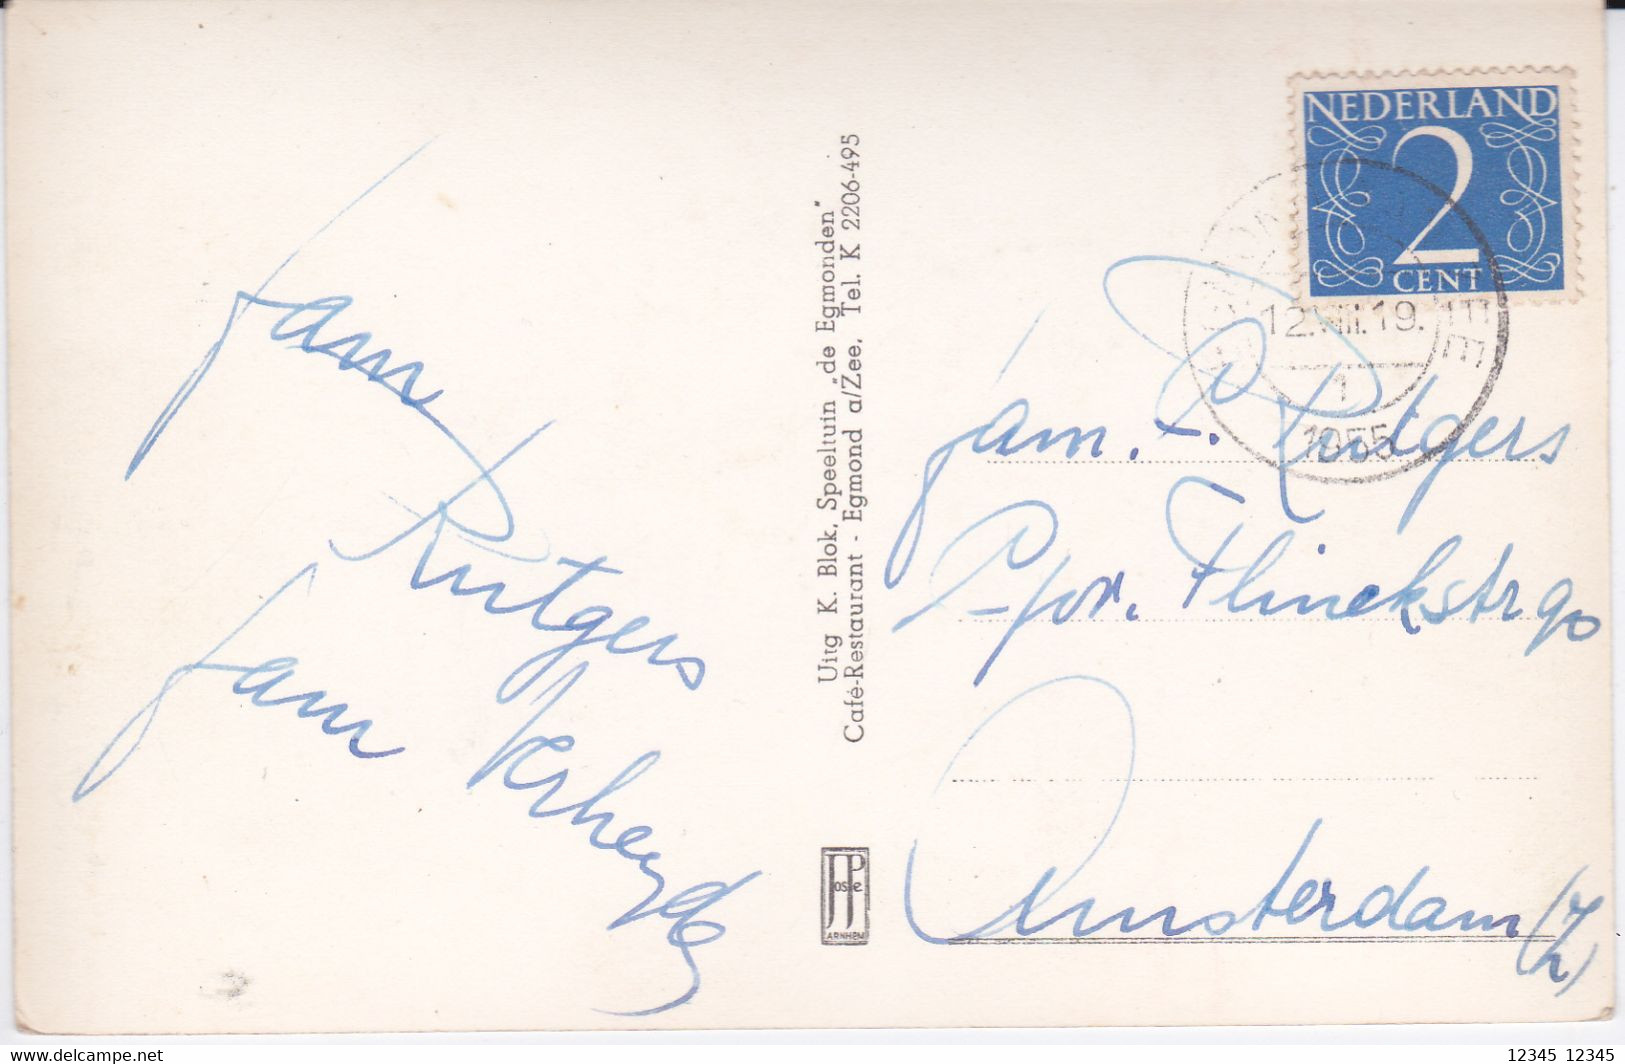 fam
Rutgers
fam Verheyde
Uitg K. Blok, Speeltuin „de Egmonden"
Café-Restaurant - Egmond a/Zee, Tel. K 2206-495
Joste
ARNHEM
NEDERLAND
2
CENT
12.VIII.19.
1
1955
fam. P. Rutgers
Gov. Flinckstr 90
Amsterdam (Z)
12345 12345